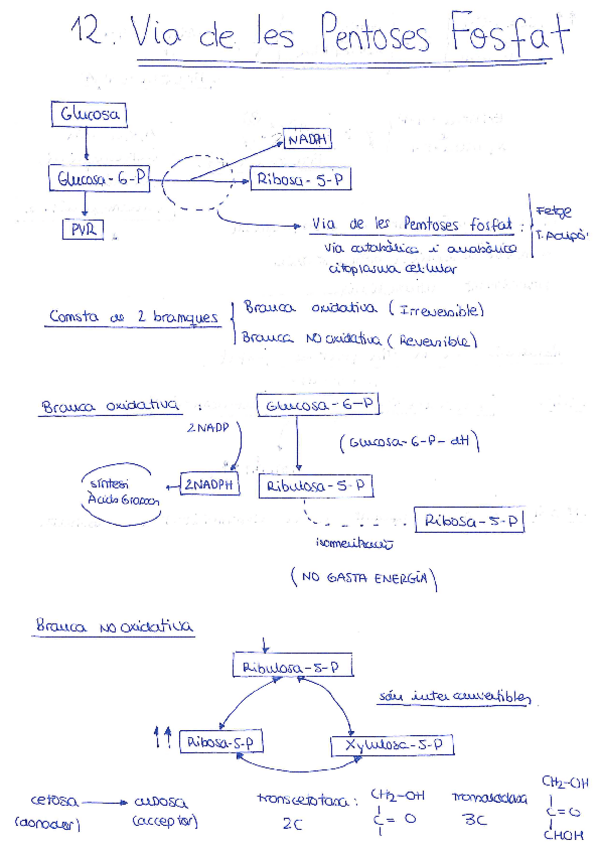 12. Via de les Pentoses Fosfat
Glucosa
NADPH
Glucosa-6-P
Ribosa-5-P
PVR
Via de les Pentoses fosfat :
Fetge
T. Adipós
via catabòlica i anabòlica
citoplasma cel·lular
Consta de 2 branques
Branca oxidativa (Irreversible)
Branca NO oxidativa (Reversible)
Branca oxidativa :
Glucosa-6-P
2NADP
(Glucosa-6-P-dH)
síntesi
Àcids Grassos
2NADPH
Ribulosa-5-P
Ribosa-5-P
isomerització
(NO GASTA ENERGÍA)
Branca NO oxidativa
Ribulosa-5-P
són interconvertibles
↑↑ Ribosa-5-P
Xylulosa-5-P
cetosa → aldosa
(donador) (acceptor)
transcetolasa :
2C
CH2-OH
C=O
transaldolasa
3C
CH2-OH
C=O
CHOH